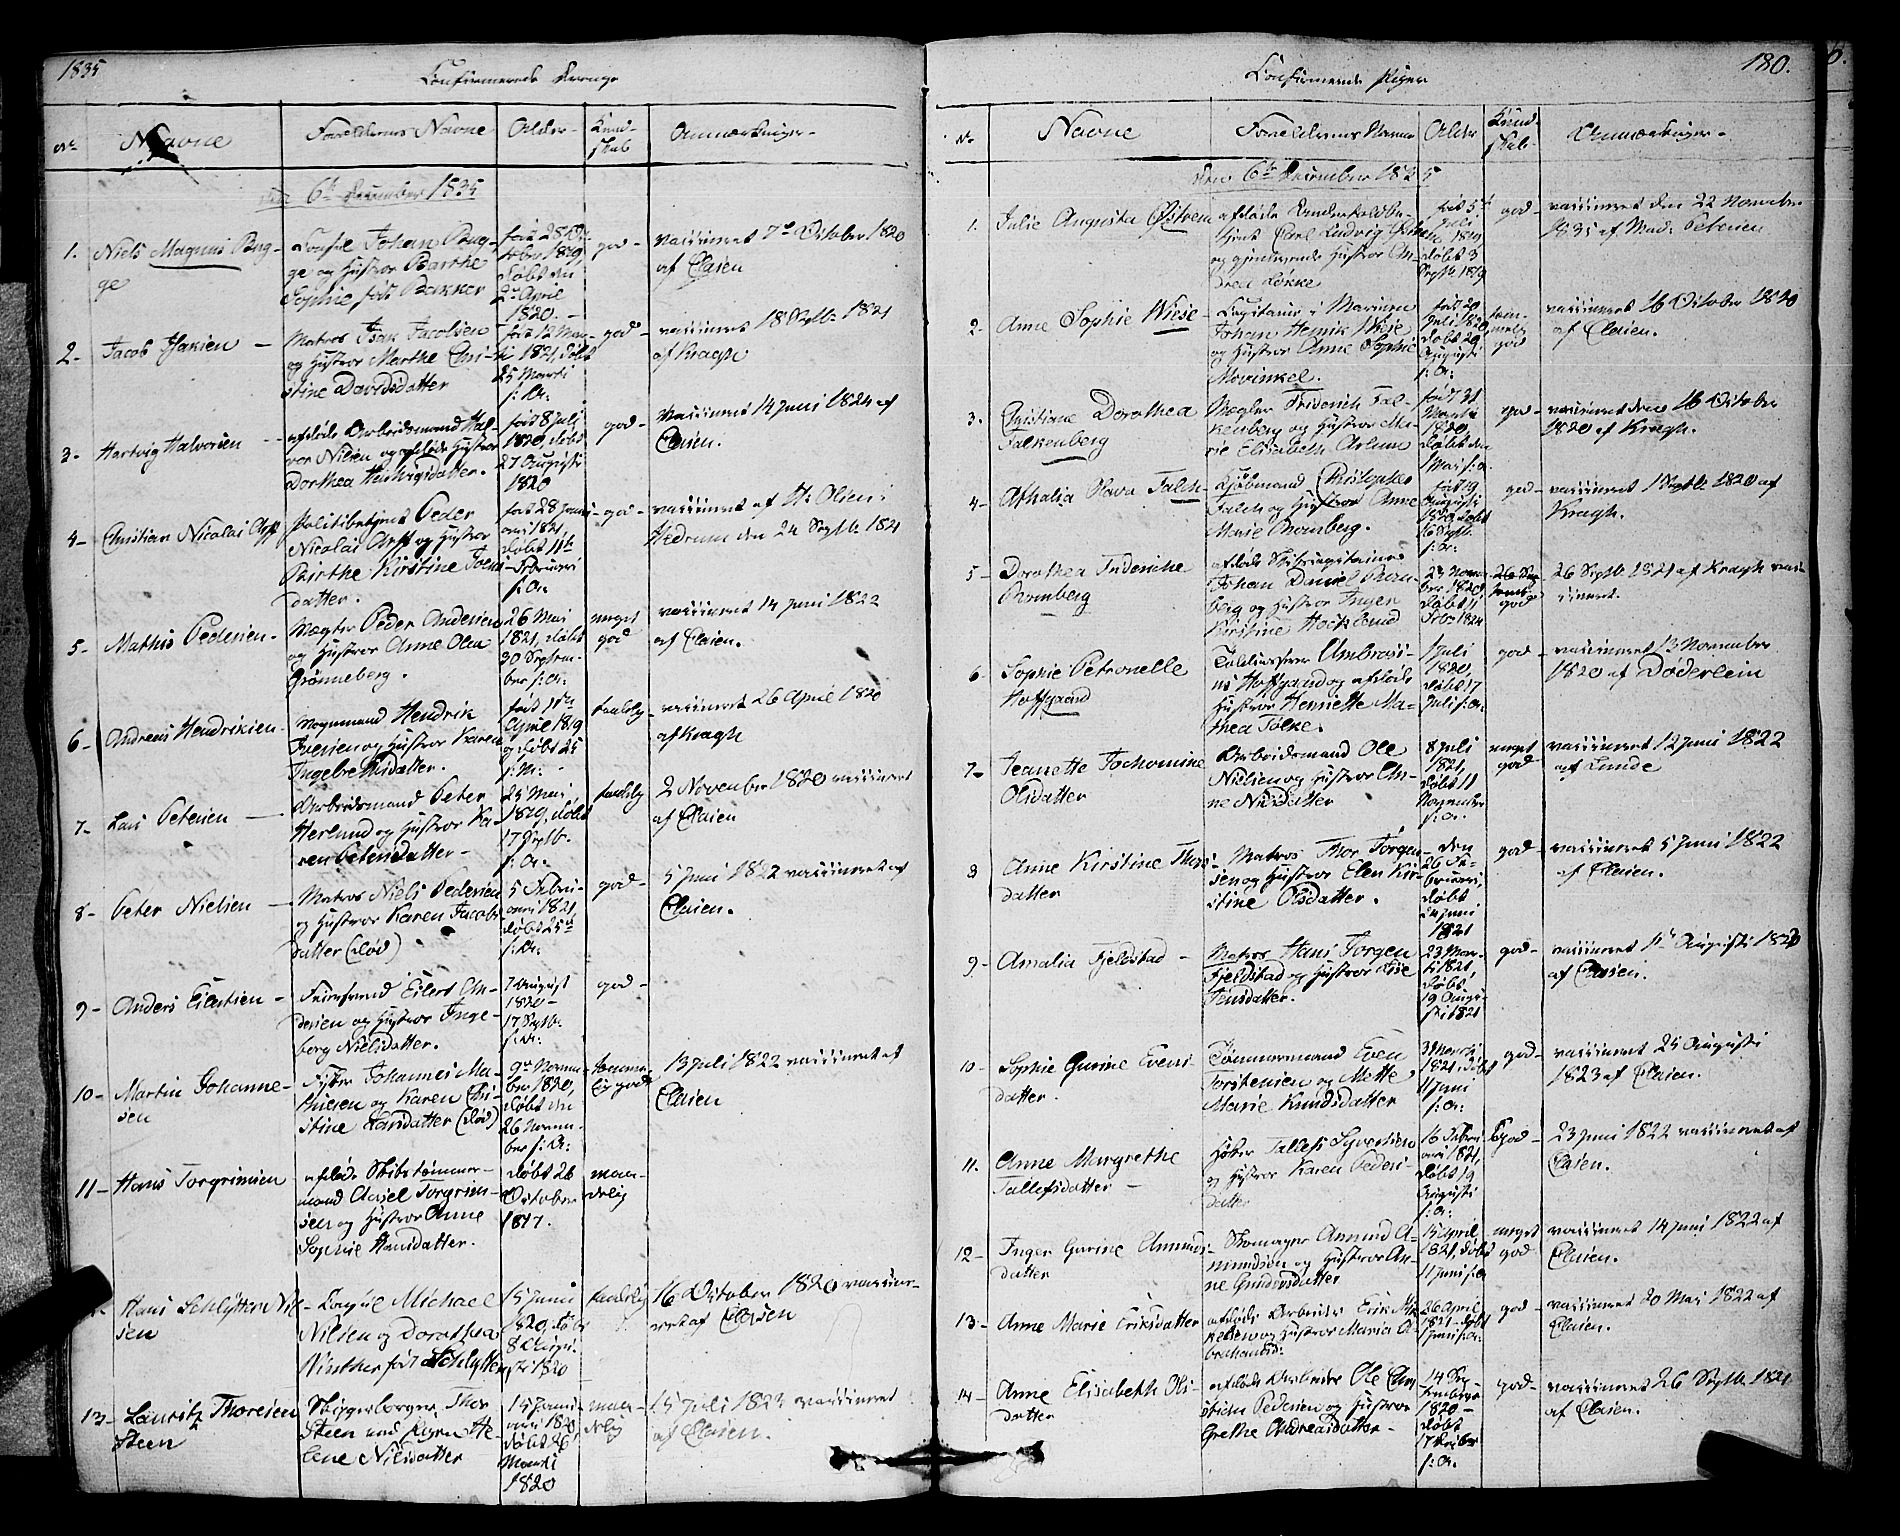 1835
Confirmerede Drenge
No
Navne
Forældrenes Navne
Alder
Kund-
skab
Anmærkninger
den 6te December 1835
1.
Niels Magnus Bug-
ge
Consul Johan Bug-
ge og Hustroe Barthe
Sophie født Bakker
født 28 Oc-
tober 1819,
døbt den
2 April
1820.
god
vaccineret 7de October 1820
af Clasen
2
Jacob Isaksen
Matros Isak Jacobsen
og Hustroe Marthe Chri-
stine Davidsdatter
født 12 Mar-
ti 1821, døbt
25 Marti
s: A:
god
vaccineret 18 Septb. 1821
af Kragh
3
Hartvig Halvorsen
afdøde Arbeidsmand Hal-
vor Nilsen og afdøde Hustroe
Dorthea Hertvigsdatter.
født 8 Juli
1820, døbt
27 Augusti
1820
god
vaccineret 14 Juni 1824 af
Clasen.
4
Christian Nicolai Arff
Politibetjent Peder
Nicolai Arff og Hustroe
Birthe Kirstine Joens
datter.
født 28 Janu-
ari 1821,
døbt 11te
Februari
s: A:
god
vaccineret af H: Olsen i
Hedrum den 24 Septb. 1821
5
Mathis Pedersen
Mægler Peder Andersen
og Hustroe Anne Olea
Grønneberg.
26 Mai
1821, døbt
30 Septem-
ber s: A:
meget
god
vaccineret 14 Juni 1822
af Clasen.
6
Andreas Hendriksen
Vognmand Hendrik
Iversen og Hustroe Karen
Ingebrethsdatter.
født 11te
April 1819
og døbt 25
s: M:
taalelig
vaccineret 26 April 1820
af Kragh
7
Lars Petersen
Arbeidsmand Peter
Herlund og Hustroe Ka-
ren Petersdatter
25 Mai
1819, døbt
17 Septb.
s: A:
taalelig
2 November 1820 vaccineret
af Clasen
8
Peter Nielsen
Matros Niels Pedersen
og Hustroe Karen Jacobs
datter (død)
5 Febru-
ari 1821,
døbt 25de
s: A:
god
5 Juni 1822 vaccineret af
Clasen.
9
Anders Eilertsen
Eilert An-
dersen og Hustroe Inge-
borg Nielsdatter.
7 August
1820
17 Septb.
s: A:
god
10
Martin Johanne-
sen
Fisker Johannes Ma-
thiesen og Karen Chri-
stine Larsdatter (død)
9de Novem-
ber 1820,
døbt den
26 Novem-
ber s: A:
temme-
lig god
13 Juli 1822 vaccineret af
Clasen
11
Hans Torgrimsen
afdøde Skibstømmer-
mand Axsel Torgrim-
sen og Hustroe Anne
Sophie Hansdatter.
døbt 26
October
1817.
maa-
delig
Hans Schlytter Nil-
sen
Consul Michael
Nilsen og Dorothea
Winther født Schlytter
15 Juni
1820, døbt
8 Augu-
sti 1820
taalelig
16 October 1820 vaccine-
ret af Clasen
13
Lauritz Thoresen
Steen
Skipperborger Thor
Steen und Karen He-
lene Nilsdatter
15 Janu-
ari 1820,
døbt 26
Marti
1820
maa-
delig
15 Juli 1823 vaccineret
af Clasen.
180.
Confirmerede Piger
No
Navne
Forældrenes Navne
Alder
Kund-
skab
Anmærkninger
den 6te December 1835
1.
Julie Augusta Østrem
og Hustroe An-
drea Løkke
født 5te
Juli
1819
døbt 3
Septb. 1819
god
vaccineret den 22 November
1835 af Mad: Petersen
2
Anne Sophie Wiese
Capitaine i Marinen
Johan Henrik Wiese
og Hustroe Anne Sophie
Mowinkel.
født 20
Juli 1820
døbt 29
Augusti
s: A:
tem-
melig
god
vaccineret 16 October 1820
af Clasen.
3.
Christiane Dorothea
Falkenberg
Mægler Friderich Fal-
kenberg og Hustroe Ma-
rie Elisabeth
født 31
Martii
1820,
døbt den
1 Mai s: A:
god
vaccineret den 16 October
1820 af Kragh.
4
Athalia Olava Falch
Kjøbmand
Falch og Hustroe Anne
Marie Bromberg.
født 19
Augusti
1820, døbt
16 Septb.
s: A:
god
vaccineret 1 Septb. 1820 af
Kragh.
5
Dorothea Friderikke
Bromberg
afdøde Skibscapitaine
Johan Daniel Brom-
berg og Hustroe Inger
Kirstine Hocklund
23 Novem-
ber 1820,
døbt 11
Febr 1821
god
26 Septb. 1821 af Kragh vacci-
neret.
6
Sophie Petronelle
Hoffgaard
Ambrosi-
us Hoffgaard og afdøde
Hustroe Henriette Ma-
thea Tolke.
1 Juli
1820,
døbt 17
Juli s: A:
god
vaccineret 13 November
1820 af Døderlein
7
Jeanette Jochomine
Olsdatter
Arbeidsmand Ole
Nielsen og Hustroe An-
ne Nilsdatter
8 Juli
1821,
døbt 11
November
s: A:
meget
god
vaccineret 12 Juni 1822
af Lunde
8
Anne Kirstine Thors
datter
Matros Thor Jørgen-
sen og Hustroe Elen Kir-
stine Olsdatter.
den
26 Fe-
bruari,
døbt
24 Juni
1821
god
vaccineret 5 Juni 1822
af Clasen.
9
Amalia Fjeldstad
Matros Hans Jørgen
Fjeldstad og Hustroe Lise
Jensdatter.
23 Mar-
ti 1821,
døbt
19 Augu-
sti 1821
god
vaccineret 11te Augusti 1823
af Clasen.
10
Sophie Gurine Evens
datter.
Tømmermand Even
Torstensen og Mette
Marie Knudsdatter
3 Marti
1821, døbt
11 Juni
s: A:
god
vaccineret 25 Augusti
1823 af Clasen.
11.
Anne Margrethe
Tallefsdatter
Tallef Syvertsen
og Hustroe Karen Peders-
datter
16 Febru
ari 1821,
døbt 19
Augusti
s: A:
god
23 Juni 1822 vaccineret af
Clasen.
12
Inger Gurine Amunds
datter
Skomager Amund A-
mundsen og Hustroe An-
ne Gundersdatter
15 April
1821, døbt
11 Juni s: A
meget
god
vaccineret 14 Juni 1822 af
Clasen.
13
Anne Marie Eriksdatter
afdøde Arbeids: Erik Mik
kelsen og Hustroe Maria A-
brahamsd:
26 April
1821 døbt
1 Juni s: A:
god
vaccineret 20 Mai 1822 af
Clasen.
14
Anne Elisabeth Ols-
datter
afdøde Arbeider Ole Chri
stian Pedersen og Hustroe
Grethe Andreasdatter
14 Sep
tember
1820
døbt
17 October
s: A:
god
vaccineret 26 Septb. 1821
af Clasen.